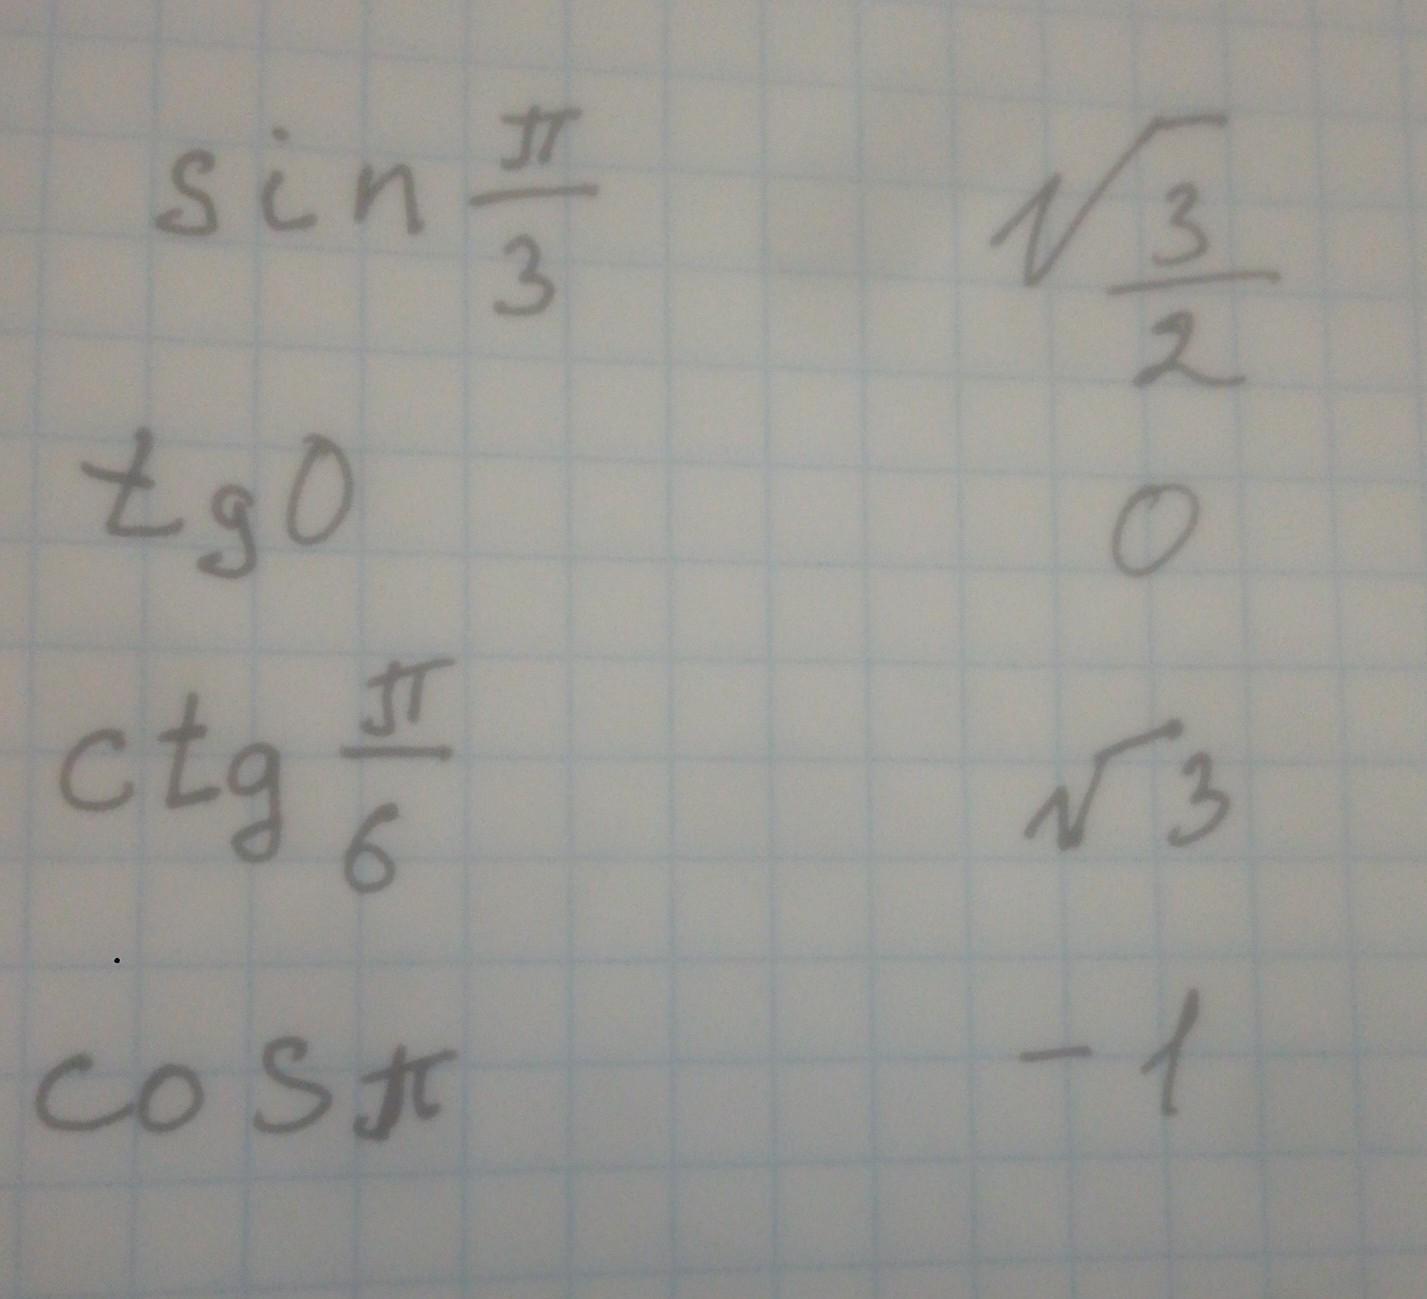 sin π/3 √3/2
tg 0 0
ctg π/6 √3
cos π -1